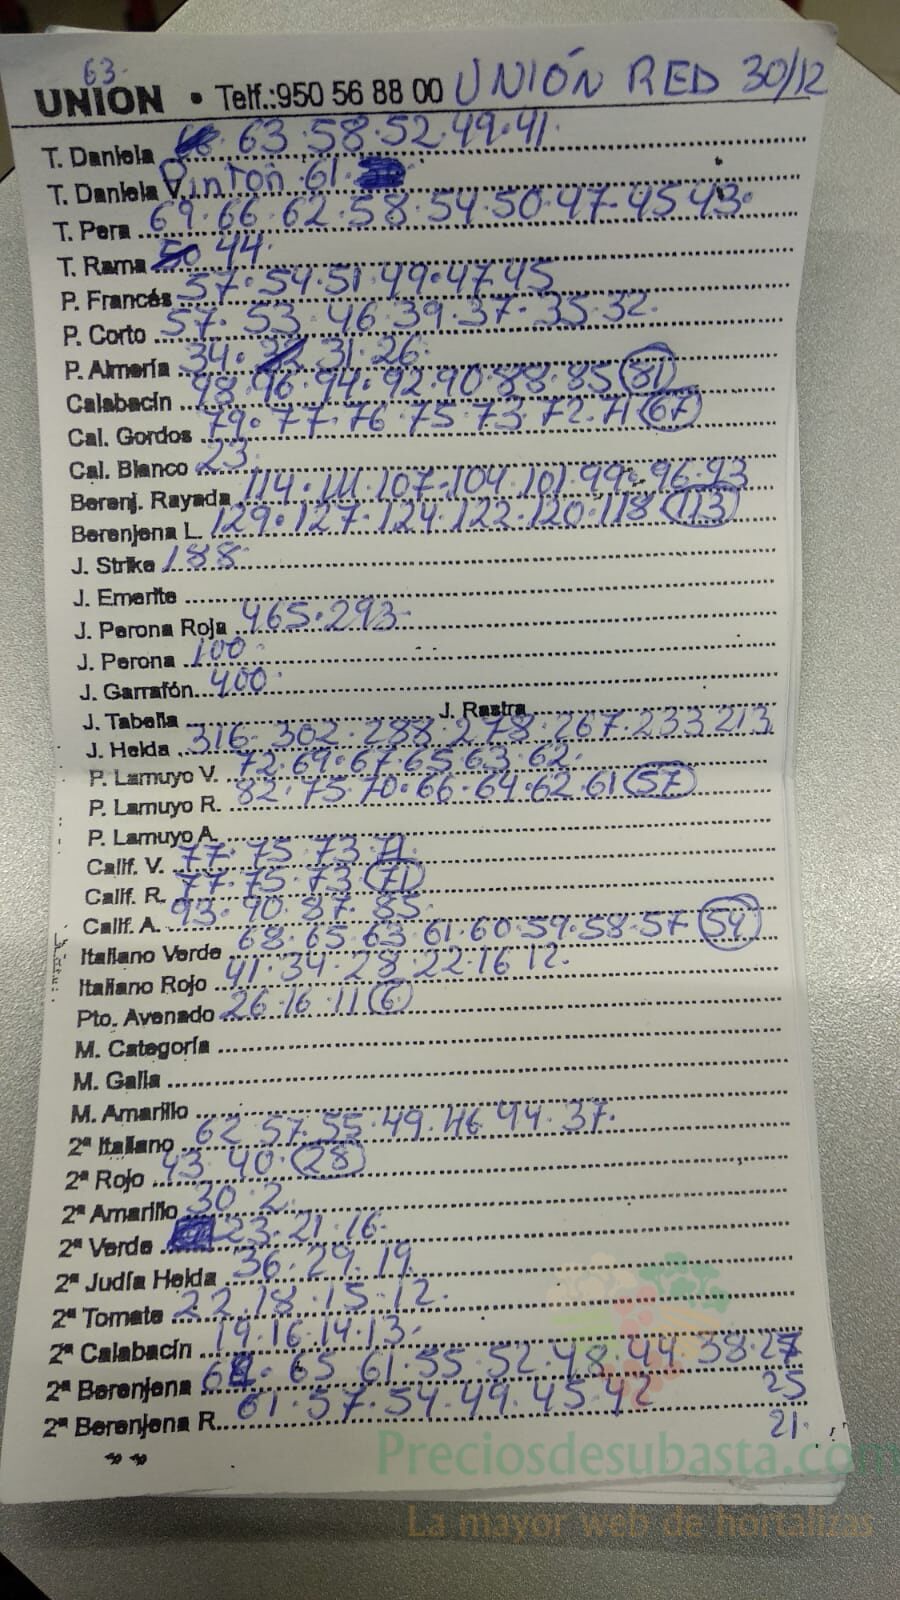 63.
UNION • Telf.:950 56 88 00 UNIÓN RED 30/12
T. Daniela 63.58.52.49.41.
T. Daniela V. Pintón.61.
T. Pera 69.66.62.58.54.50.47.45.43.
T. Rama 50 44.
P. Francés 57.54.51.49.47.45
P. Corto 57.53.46.39.37.35.32.
P. Almería 34. 31.26.
Calabacín 98.96.94.92.90.88.85 81
Cal. Gordos 79.77.76.75.73.72.71 67
Cal. Blanco 23.
Berenj. Rayada 114.111.107.104.101.99.96.93
Berenjena L. 129.127.124.122.120.118 113
J. Strike 188
J. Emerite
J. Perona Roja 465.293.
J. Perona 100.
J. Garrafón 400.
J. Tabella J. Rastra
J. Helda 316.302.288.278.267.233.213
P. Lamuyo V. 72.69.67.65.63.62.
P. Lamuyo R. 82.75.70.66.64.62.61 57
P. Lamuyo A.
Calif. V. 77.75.73.71.
Calif. R. 77.75.73 71
Calif. A. 93.90.87.85.
Italiano Verde 68.65.63.61.60.59.58.57 54
Italiano Rojo 41.34.28.22.16.12.
Pto. Avenado 26.16.11 6
M. Categoría
M. Galia
M. Amarillo
2ª Italiano 62.57.55.49.46.44.37.
2ª Rojo 43.40. 28
2ª Amarillo 30.2.
2ª Verde 23.21.16.
2ª Judía Helda 36.29.19
2ª Tomate 22.18.15.12.
2ª Calabacín 19.16.14.13.
2ª Berenjena 65.61.55.52.48.44.38.27
25
2ª Berenjena R. 61.57.54.49.45.42
21.
Preciosdesubasta.com
La mayor web de hortalizas